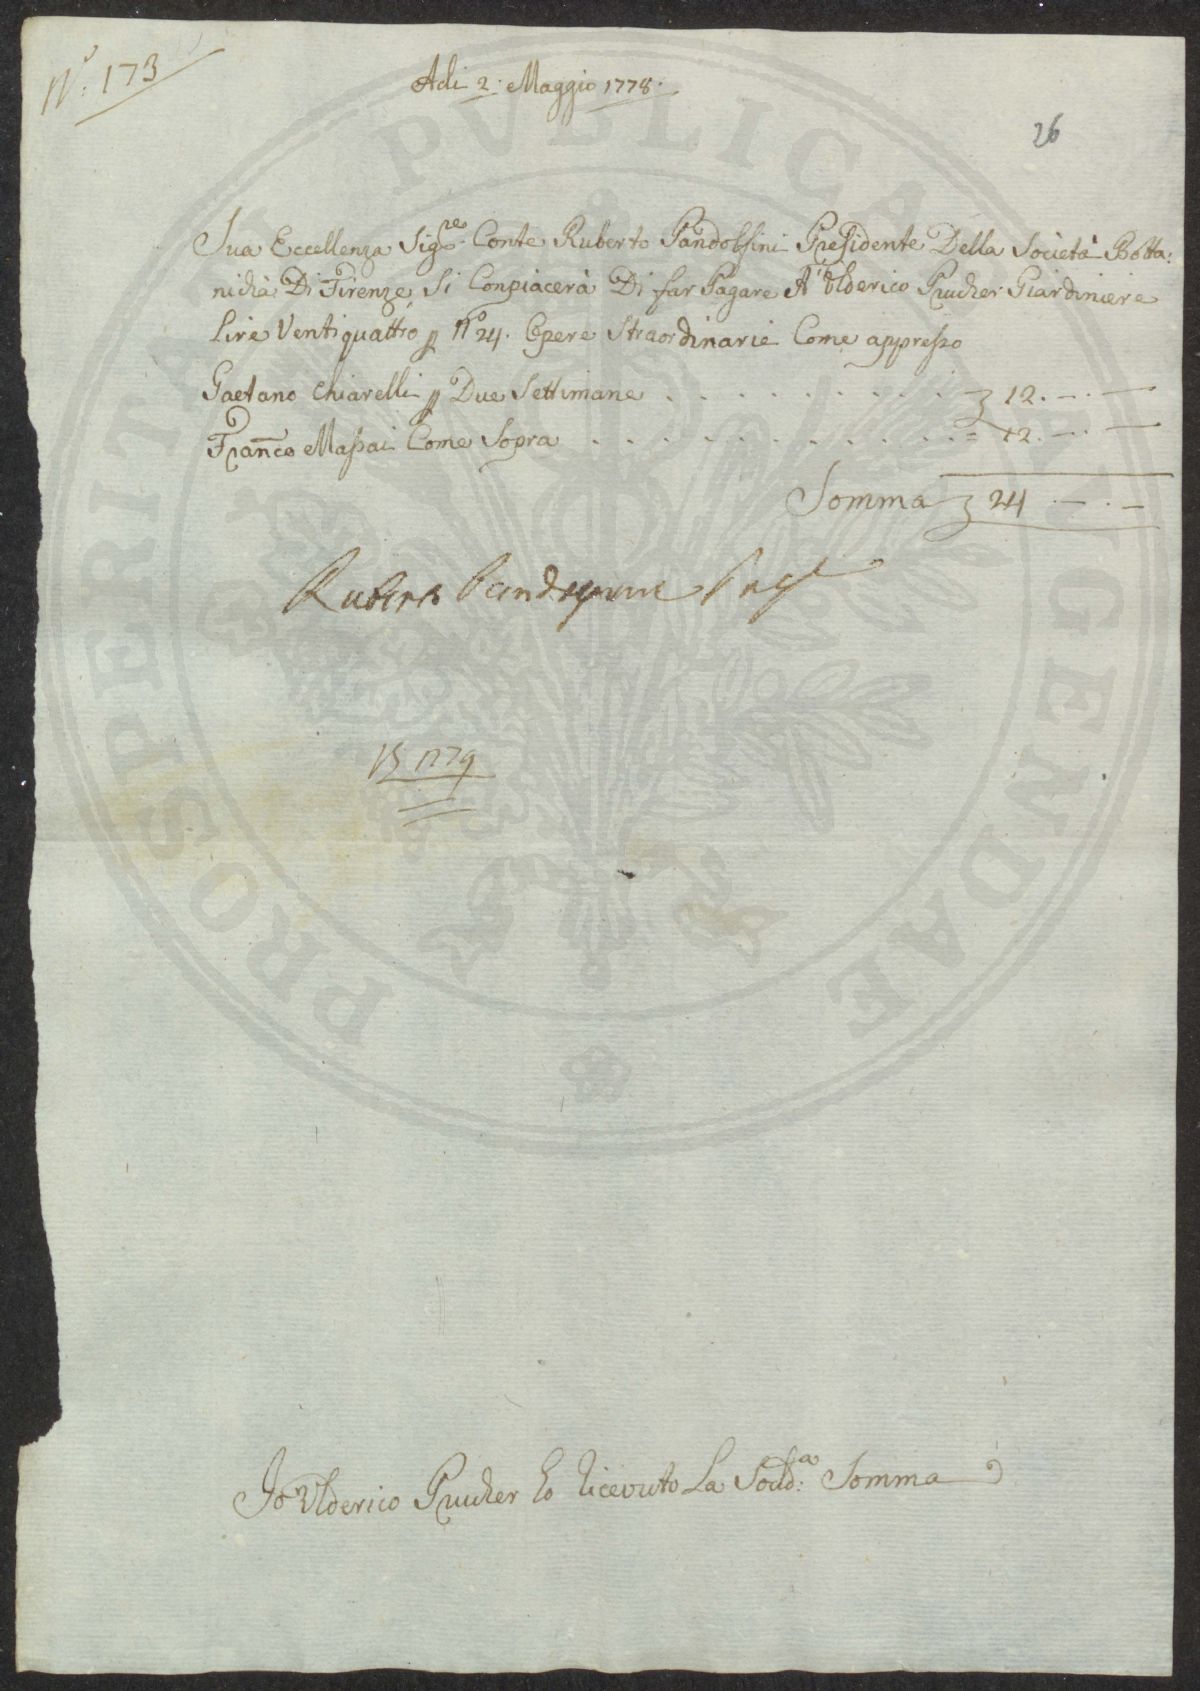 N.° 173
Adi 2. Maggio 1778.
26
Sua Eccellenza Sig.re Conte Ruberto Pandolfini Presidente Della Società Botta:
nicha Di Firenze Si Conpiacerà Di far Pagare A Ulderico Prucher Giardiniere
lire Ventiquattro p N° 24. Opere Straordinarie Come appresso
Gaetano Chiarelli p Due Settimane . . . . . . . . . . 12. — . —
Franco Massai Come Sopra . . . . . . . . . . . . = 12. — . —
Somma 24 . — . —
Ruberto Pandolfini Pres
1779
Io Ulderico Prucher ho ricevuto La Sodd.a Somma
PROSPERITATI PUBLICAE AUGENDAE